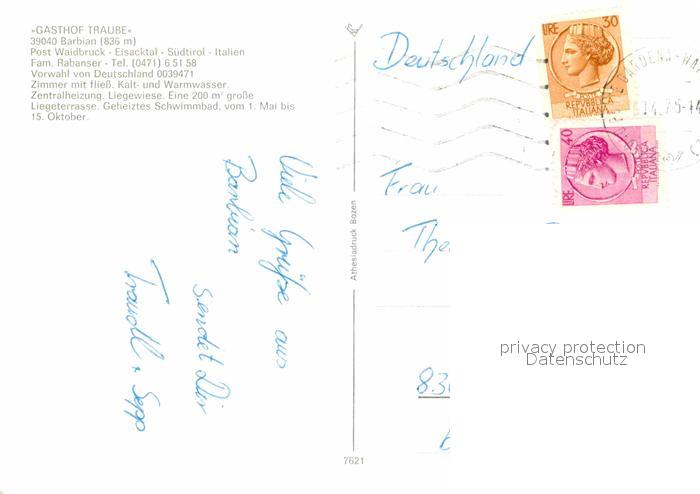 »GASTHOF TRAUBE«
39040 Barbian (836 m)
Post Waidbruck - Eisacktal - Südtirol - Italien
Fam. Rabanser - Tel. (0471) 6 51 58
Vorwahl von Deutschland 0039471
Zimmer mit fließ. Kalt- und Warmwasser.
Zentralheizung. Liegewiese. Eine 200 m² große
Liegeterrasse. Geheiztes Schwimmbad, vom 1. Mai bis
15. Oktober.
Viele Grüße aus
Barbian
sendet Dir
Traudl + Sepp
Athesiadruck Bozen
7621
Deutschland
Frau
The
830
LIRE 30
POSTE
REPVBBLICA
ITALIANA
LIRE 40
POSTE
REPVBBLICA
ITALIANA
privacy protection
Datenschutz